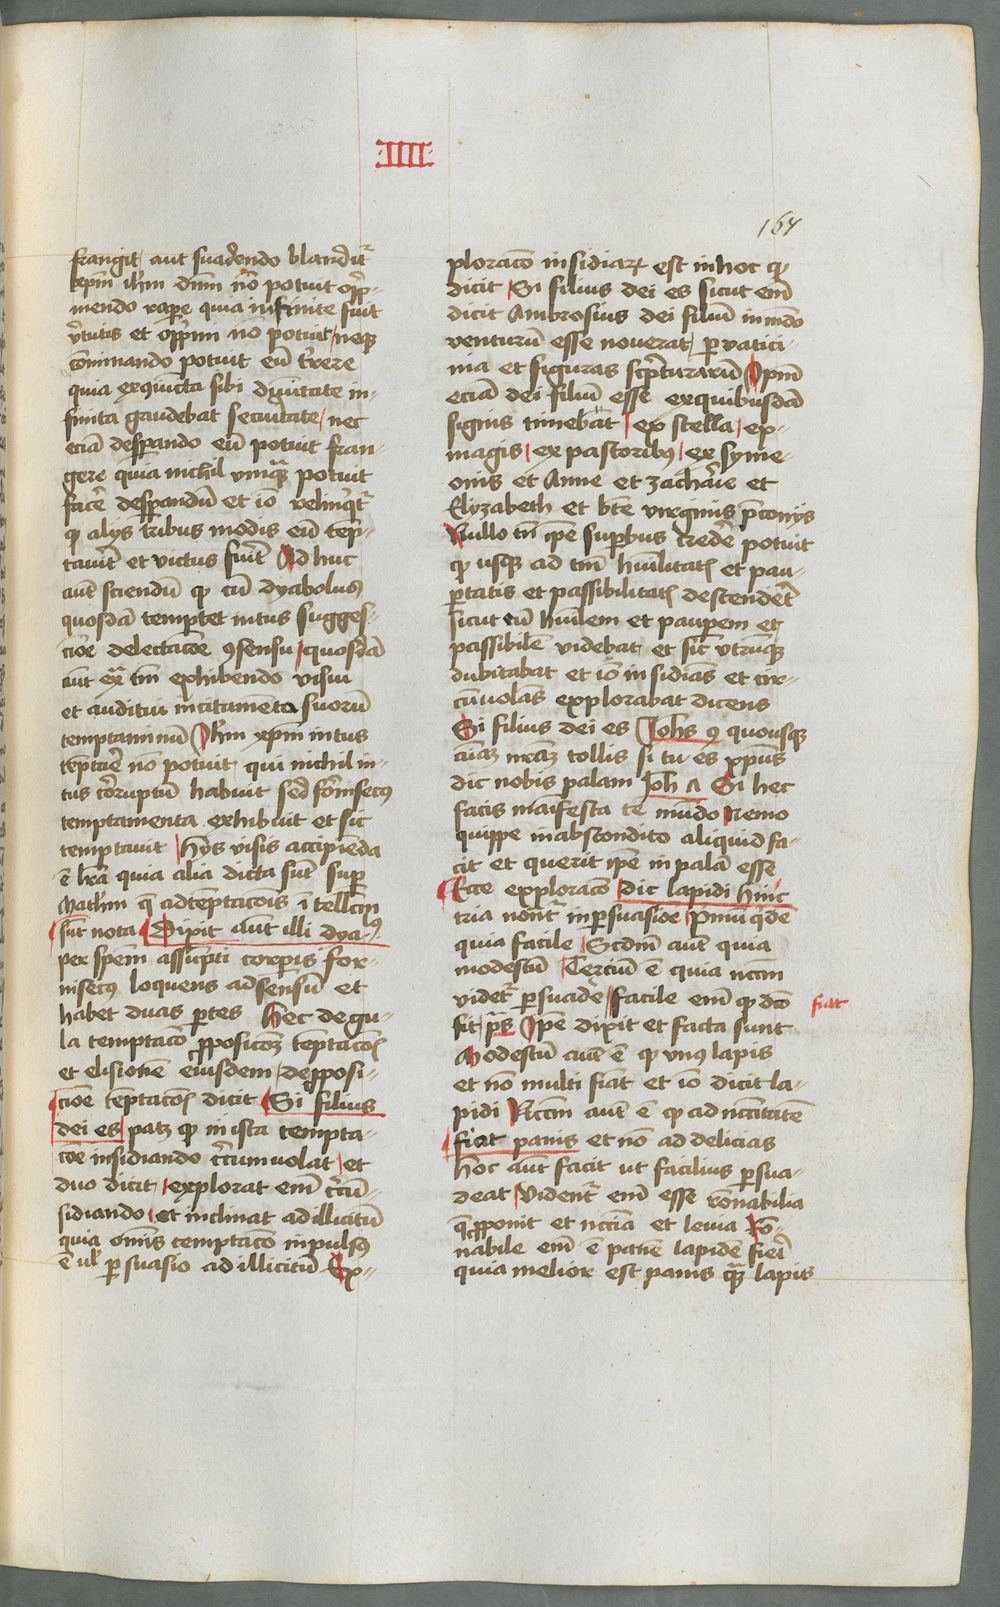 ·IIII·
164
frangit aut suadendo blandit᷑
xp̄m ih̄m dn̄m nr̄o potuit opp̄-
mendo rapere quia infinite fuit
v̄tutis et opp̄mi nō potuit neqꝫ
cōminando potuit eū t̄rere
quia exquincta sibi dyuitate in-
finita gaudebat securitate nec
eciā desꝑando eū potuit fran-
gere quia nichil vnqᷓ potuit
fac̄e desꝑandū et iō relinqt᷑
ꝙ alijs tribus modis eū temp-
tauit̄ et victus fuit̄ Ad huc
aut̄ sciendū ꝙ cū dyabolus
quosdā temptet intus sugges-
tiōe delectacōe ꝯsensu quosdā
aut̄ ext̄ tm̄ exhibendo visui
et auditui incitamēta suorū
temptaminū Ih̄m xp̄m intus
tēptar̄e nō potuit qui nichil in-
tus cōruptū habuit sed forinsecꝰ
temptamenta exhibuit et sic
temptauit Hijs visis accipienda
ē lr̄a quia alia dicta sūt suꝑ
Mathm̄ q̄ ad tēptacōnis ītellc̄m
sūt nota Dixit aut̄ illi dyaꝰ
per sp̄em assūpti corꝑis for-
insecꝰ loquens ad sensū et
habet duas ꝑtes Hec de gu-
la temptacō ꝓposicōꝫ tēptacōis
et elisionē eiusdem de ꝓposi-
cōe tēptacōis dicit Si filius
dei es patꝫ ꝙ in ista tempta-
cōe insidiando circumuolat et
duo dicit explorat em̄ circū-
sidiando et inclinat ad illicitū
quia omīs temptacō inpulsꝰ
ē ul̄ ꝑsuasio ad illicitū Ex-
ploracō insidiaꝝ est in hoc ꝙ
dicit Si filius dei es sicut em̄
dicit Ambrosius dei filiū in mūdo
venturū esse nouerat ꝑ vatici-
nia et figuras scp̄turarū Ip̄m
eciā dei filiū esse ex quibusdā
signis timebat ex stella ex
magis ex pastoribꝰ ex syme-
onis et Anne et zacharie et
Elyzabeth et bt̄e virginis p̄conijs
Nullo tn̄ ip̄e suꝑbus creder̄e potuit
ꝙ usqꝫ ad tm̄ hūilitatis et pau-
ꝑtatis et passibilitatis descender̄t
sicut eū hūilem et pauꝑem et
passibilē videbat et sic vtrūqꝫ
dubitabat et iō insidians et cir-
cūuolās explorabat dicens
Si filius dei es Joh̄s ꝯ quousqꝫ
aīaꝫ nr̄aꝫ tollis si tu es xp̄us
dic nobis palam Joh̄ A Si hec
facis maīfesta te mūdo Nemo
quippe in abscondito aliquid fa-
cit et querit ip̄e in palā esse
Ecce exploracō Dic lapidi huic
tria nōnt᷑ in ꝑsuasiōe Pmū qͥde
quia facile Scd̄m aut̄ quia
modestū Terciū ē quia nccm̄
videt᷑ ꝑsuade facile em̄ ꝙ dc̄o
fiat
fit ps̄ Ip̄e dixit et facta sunt
Modestū aut̄ ē ꝙ vnꝰ lapis
et nō multi fiāt et iō dicit la-
pidi Nccm̄ aut̄ ē ꝙ ad nccītatē
fiat panis et nō ad delicias
hoc aut̄ facit ut facilius ꝑsua-
deat Vident᷑ em̄ esse rōnabilia
q̄ ꝓponit et nccīa et leuia Rō-
nabile em̄ ē panē lapidē fieri
quia melior est panis qᷓꝫ lapis